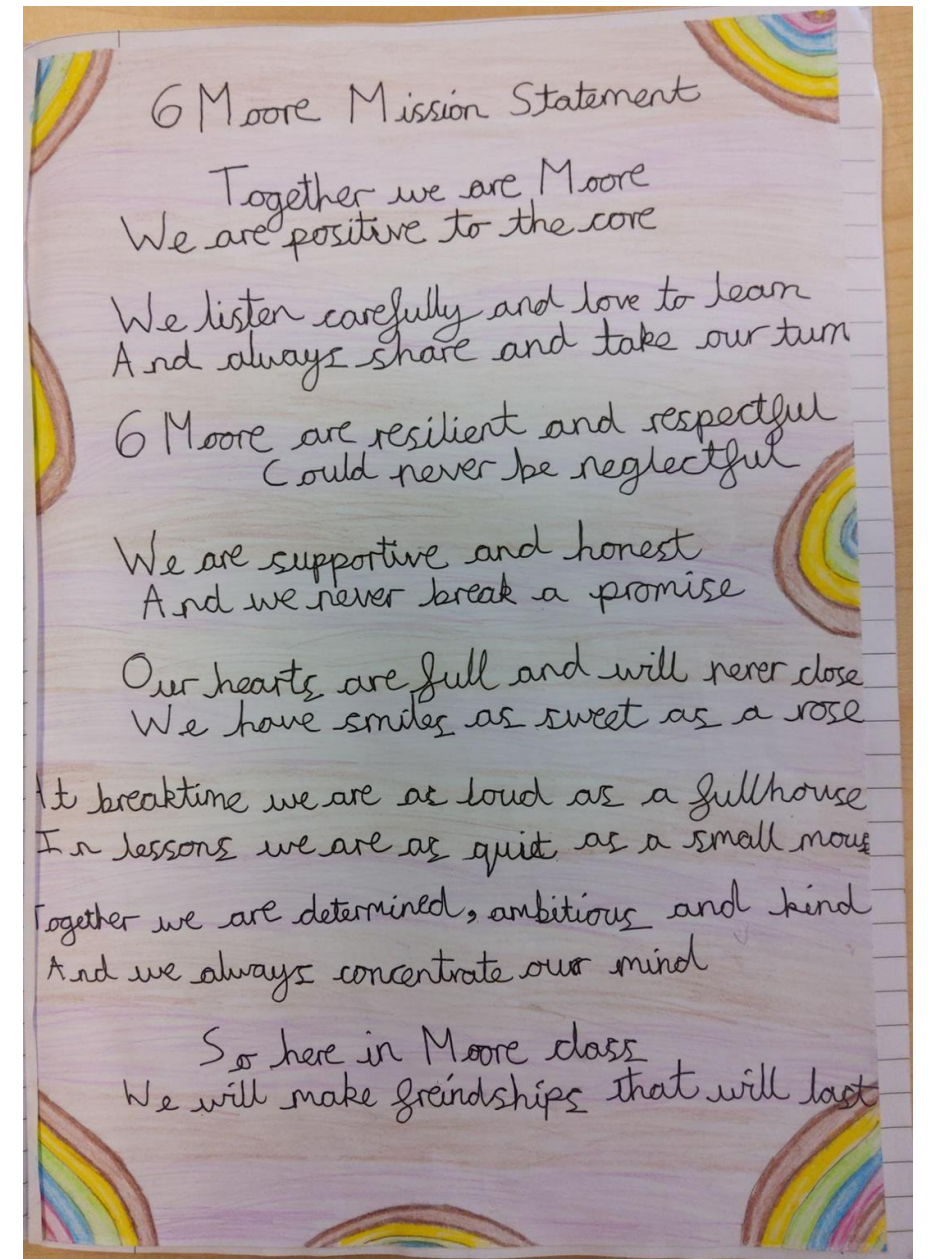 6 Moore Mission Statement
Together we are Moore
We are positive to the core
We listen carefully and love to learn
And always share and take our turn
6 Moore are resilient and respectful
Could never be neglectful
We are supportive and honest
And we never break a promise
Our hearts are full and will never close
We have smiles as sweet as a rose
At breaktime we are as loud as a fullhouse
In lessons we are as quiet as a small mouse
Together we are determined, ambitious and kind
And we always concentrate our mind
So here in Moore class
We will make freindships that will last